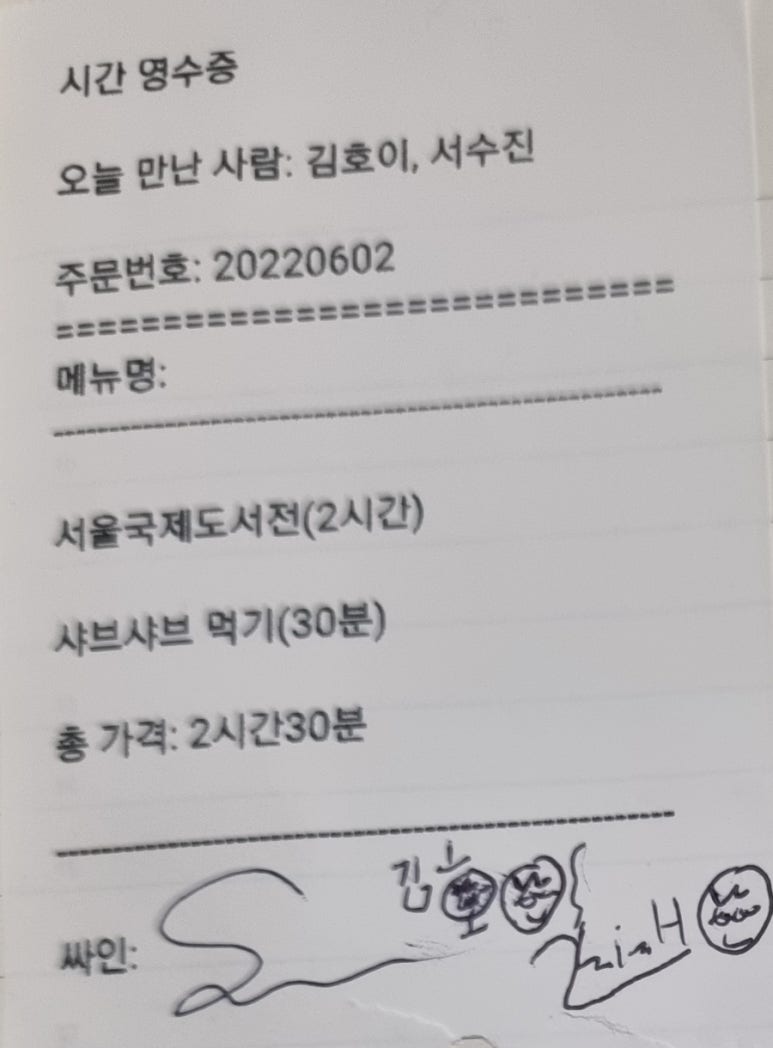 시간 영수증
오늘 만난 사람: 김호이, 서수진
주문번호: 20220602
=============================
메뉴명:
--------------------------------------------------------
서울국제도서전(2시간)
샤브샤브 먹기(30분)
총 가격: 2시간30분
--------------------------------------------------------
싸인: 김호이